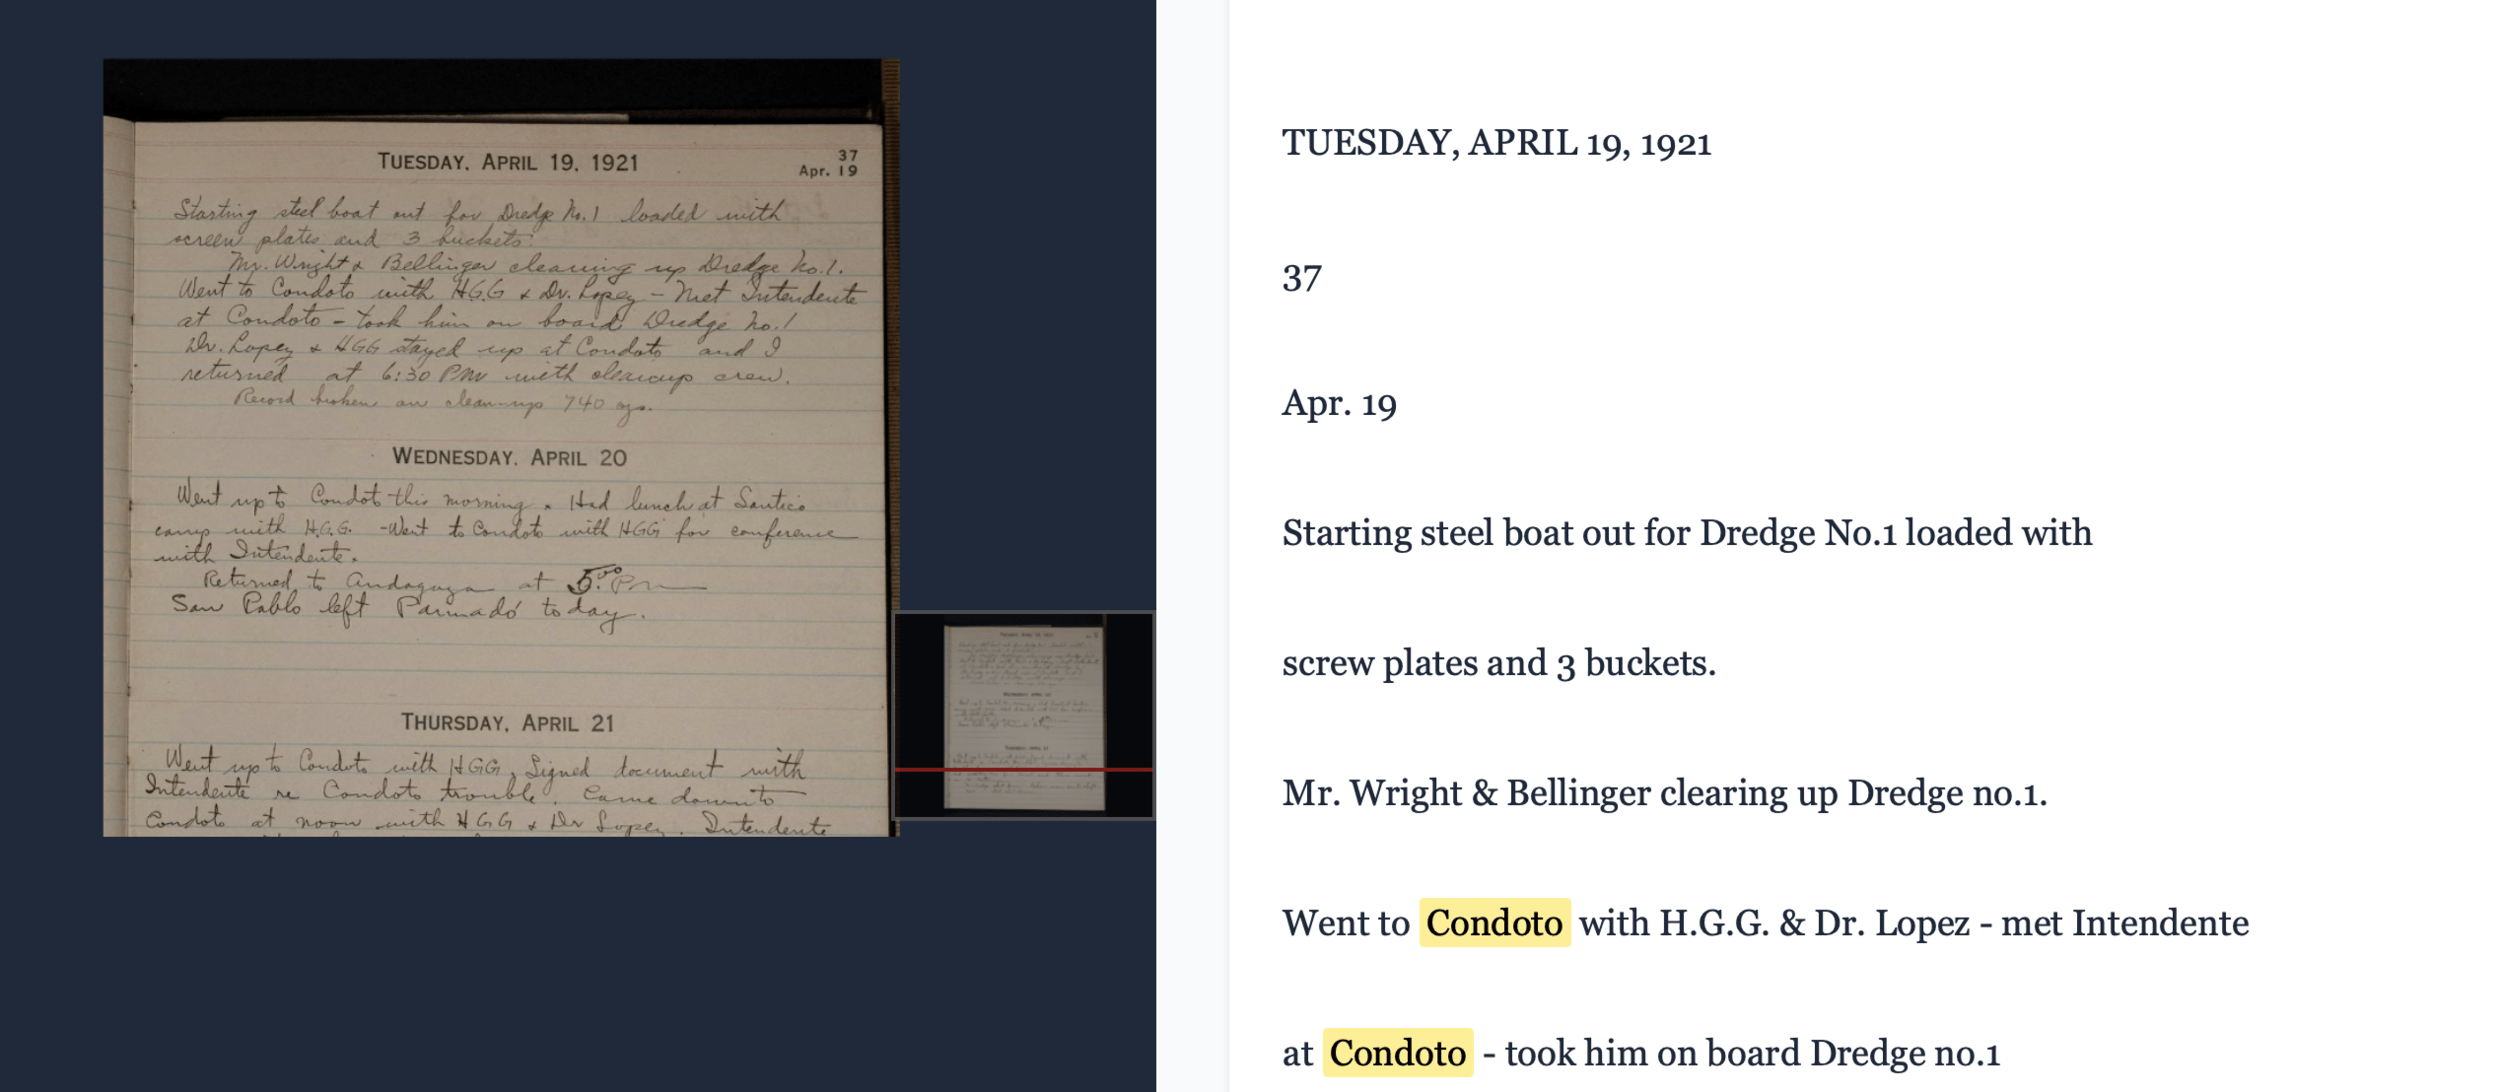 TUESDAY, APRIL 19, 1921
37
Apr. 19
Starting steel boat out for Dredge No.1 loaded with
screen plates and 3 buckets.
Mr. Wright & Bellinger cleaning up Dredge No.1.
Went to Condoto with HGG & Dr. Lopez - Met Intendente
at Condoto - took him on board Dredge No.1
Dr. Lopez & HGG stayed up at Condoto and I
returned at 6:30 PM with cleanup crew.
Record broken on clean-up 740 ozs.
WEDNESDAY, APRIL 20
Went up to Condoto this morning. Had lunch at
camp with H.G.G. - Went to Condoto with HGG for conference
with Intendente.
Returned to Andagoya at 5:00 PM
San Pablo left today.
THURSDAY, APRIL 21
Went up to Condoto with HGG. Signed document with
Intendente re Condoto trouble. Came down to
Condoto at noon with HGG & Dr Lopez. Intendente
TUESDAY, APRIL 19, 1921
37
Apr. 19
Starting steel boat out for Dredge No.1 loaded with
screw plates and 3 buckets.
Mr. Wright & Bellinger clearing up Dredge no.1.
Went to Condoto with H.G.G. & Dr. Lopez - met Intendente
at Condoto - took him on board Dredge no.1